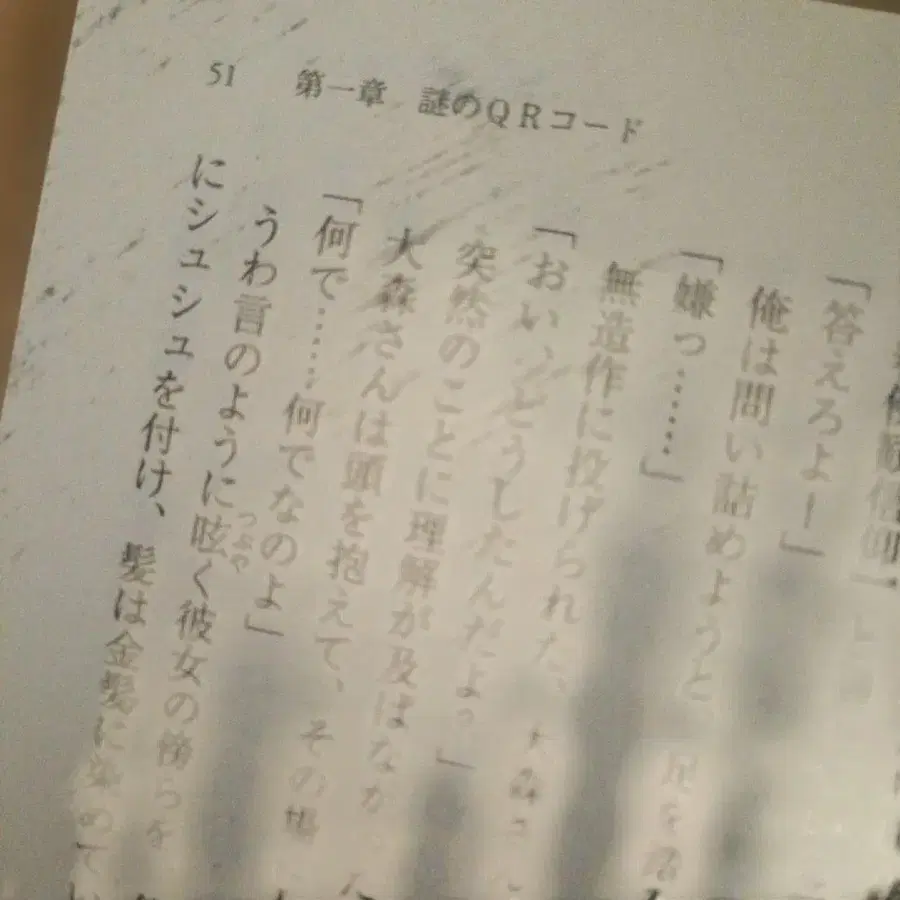 51 第一章 謎のQRコード
「答えろよー」
俺は問い詰めようと
「嫌っ……」
無造作に投げられた、大森さ
「おい、どうしたんだよ。」
突然のことに理解が及ばなか
大森さんは頭を抱えて、その場
「何で……何でなのよ」
うわ言のように呟く彼女の傍らを
つぶや
にシュシュを付け、髪は金髪に染めてい